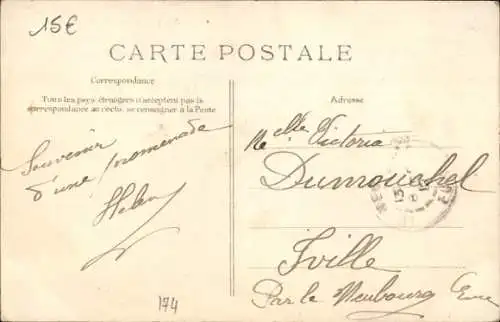 15€
CARTE POSTALE
Correspondance
Tous les pays étrangers n'acceptent pas la
correspondance au recto, se renseigner à la Poste
Adresse
Souvenir
d'une promenade
Melle Victoria
Dumouchel
Iville
Par le Neubourg Eure
174